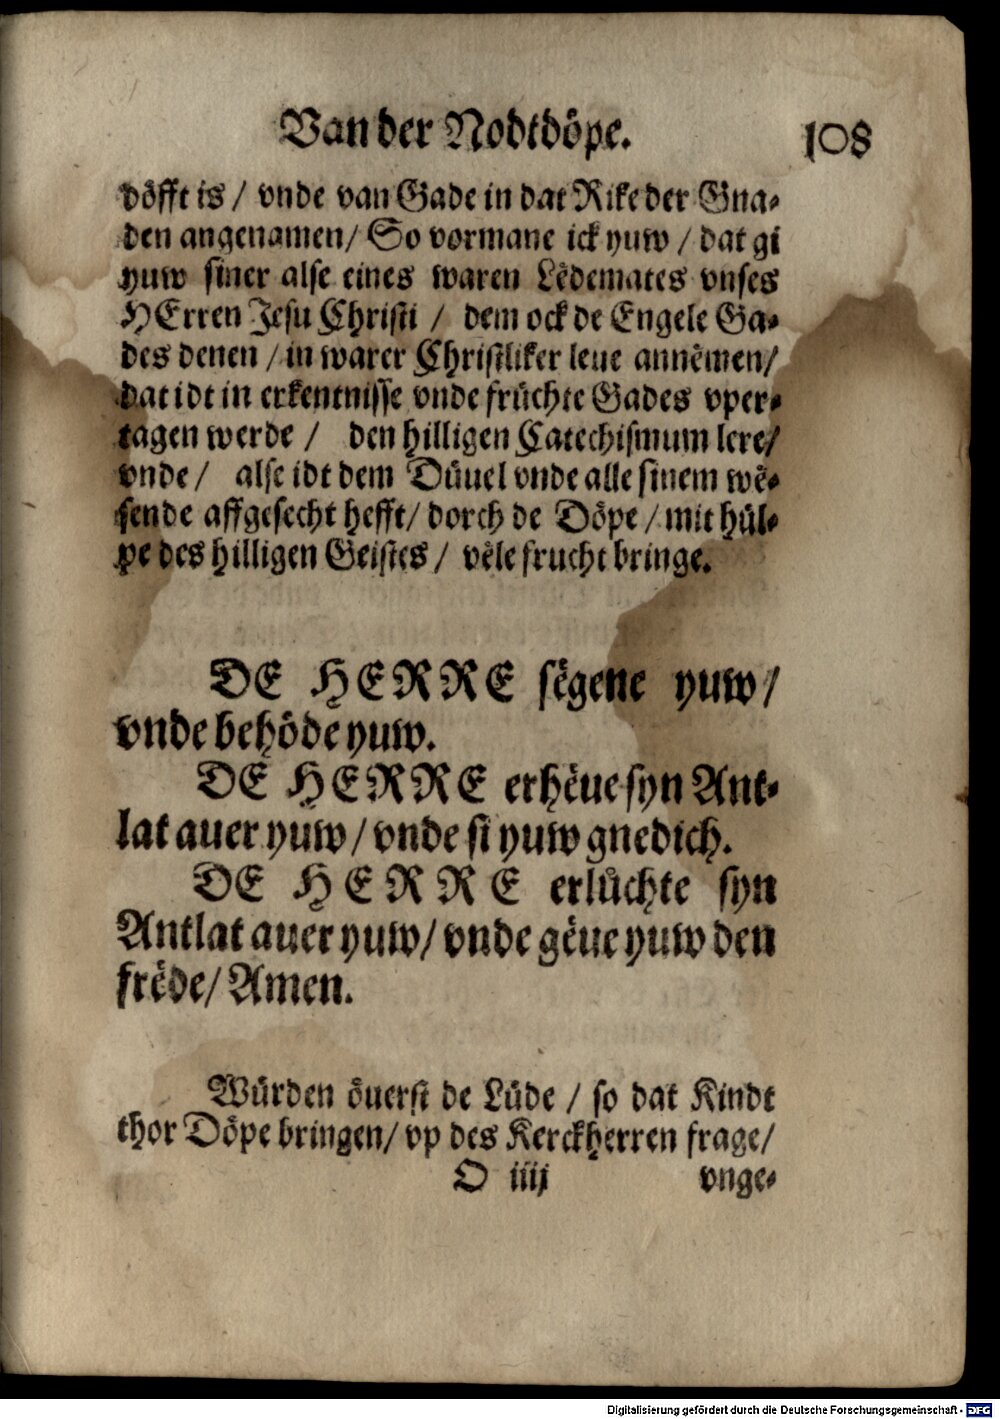 Van der Nodtdöpe. 108
döfft is / vnde van Gade in dat Rike der Gna-
den angenamen / So vormane ick yuw / dat gi
yuw siner alse eines waren Lëdemates vnses
HErren Jesu Christi / dem ock de Engele Ga-
des denen / in warer Christliker leue annëmen /
dat idt in erkentnisse vnde früchte Gades vper-
tagen werde / den hilligen Catechismum lere /
vnde / alse idt dem Düuel vnde alle sinem wë-
sende affgesecht hefft / dorch de Döpe / mit hül-
pe des hilligen Geistes / vële frucht bringe.
DE HERRE sëgene yuw /
vnde behöde yuw.
DE HERRE erhëue syn Ant-
lat auer yuw / vnde si yuw gnedich.
DE HERRE erlüchte syn
Antlat auer yuw / vnde gëue yuw den
frëde / Amen.
Würden öuerst de Lüde / so dat Kindt
thor Döpe bringen / vp des Kerckherren frage /
O iiij vnge-
Digitalisierung gefördert durch die Deutsche Forschungsgemeinschaft - DFG